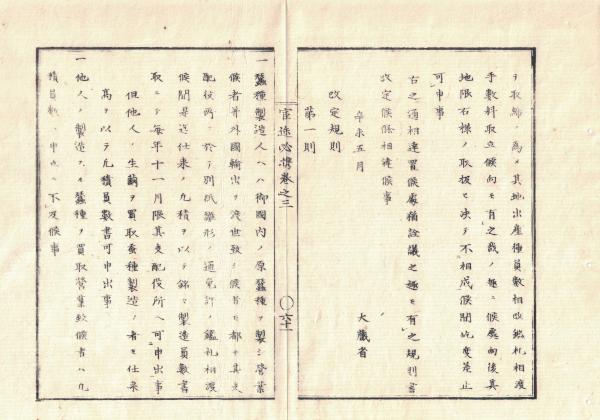 ヲ取締ノ為メ其地出産種員数相改鑑札相渡
手数料取立候向モ有之哉ノ趣ニ候處向後其
地限右様ノ取扱ハ決テ不相成候間此度差止
可申事
右之通相達置候處猶詮議之趣モ有之規則書
改定候條相達候事
辛未五月
大蔵省
改定規則
第一則
官途必携巻之三
六十一
一蠶種製造人ハ御國内ノ原蠶種ヲ製シ營業
候者并外國輸出ヲ渡世致シ候者モ都テ其支
配役所ニ於テ別紙雛形ノ通免許ノ鑑札相渡
候間是迄仕来ノ凡積ヲ以テ銘々製造員数書
取ニテ毎年十一月限其支配役所ヘ可申出事
但他人ノ生繭ヲ買取蚕種製造ノ者モ仕来
高ヲ以テ凡積員数書可申出事
一他人ノ製造スル蠶種ヲ買取營業致候者ハ凡
積員数ノ申立ニ不及候事